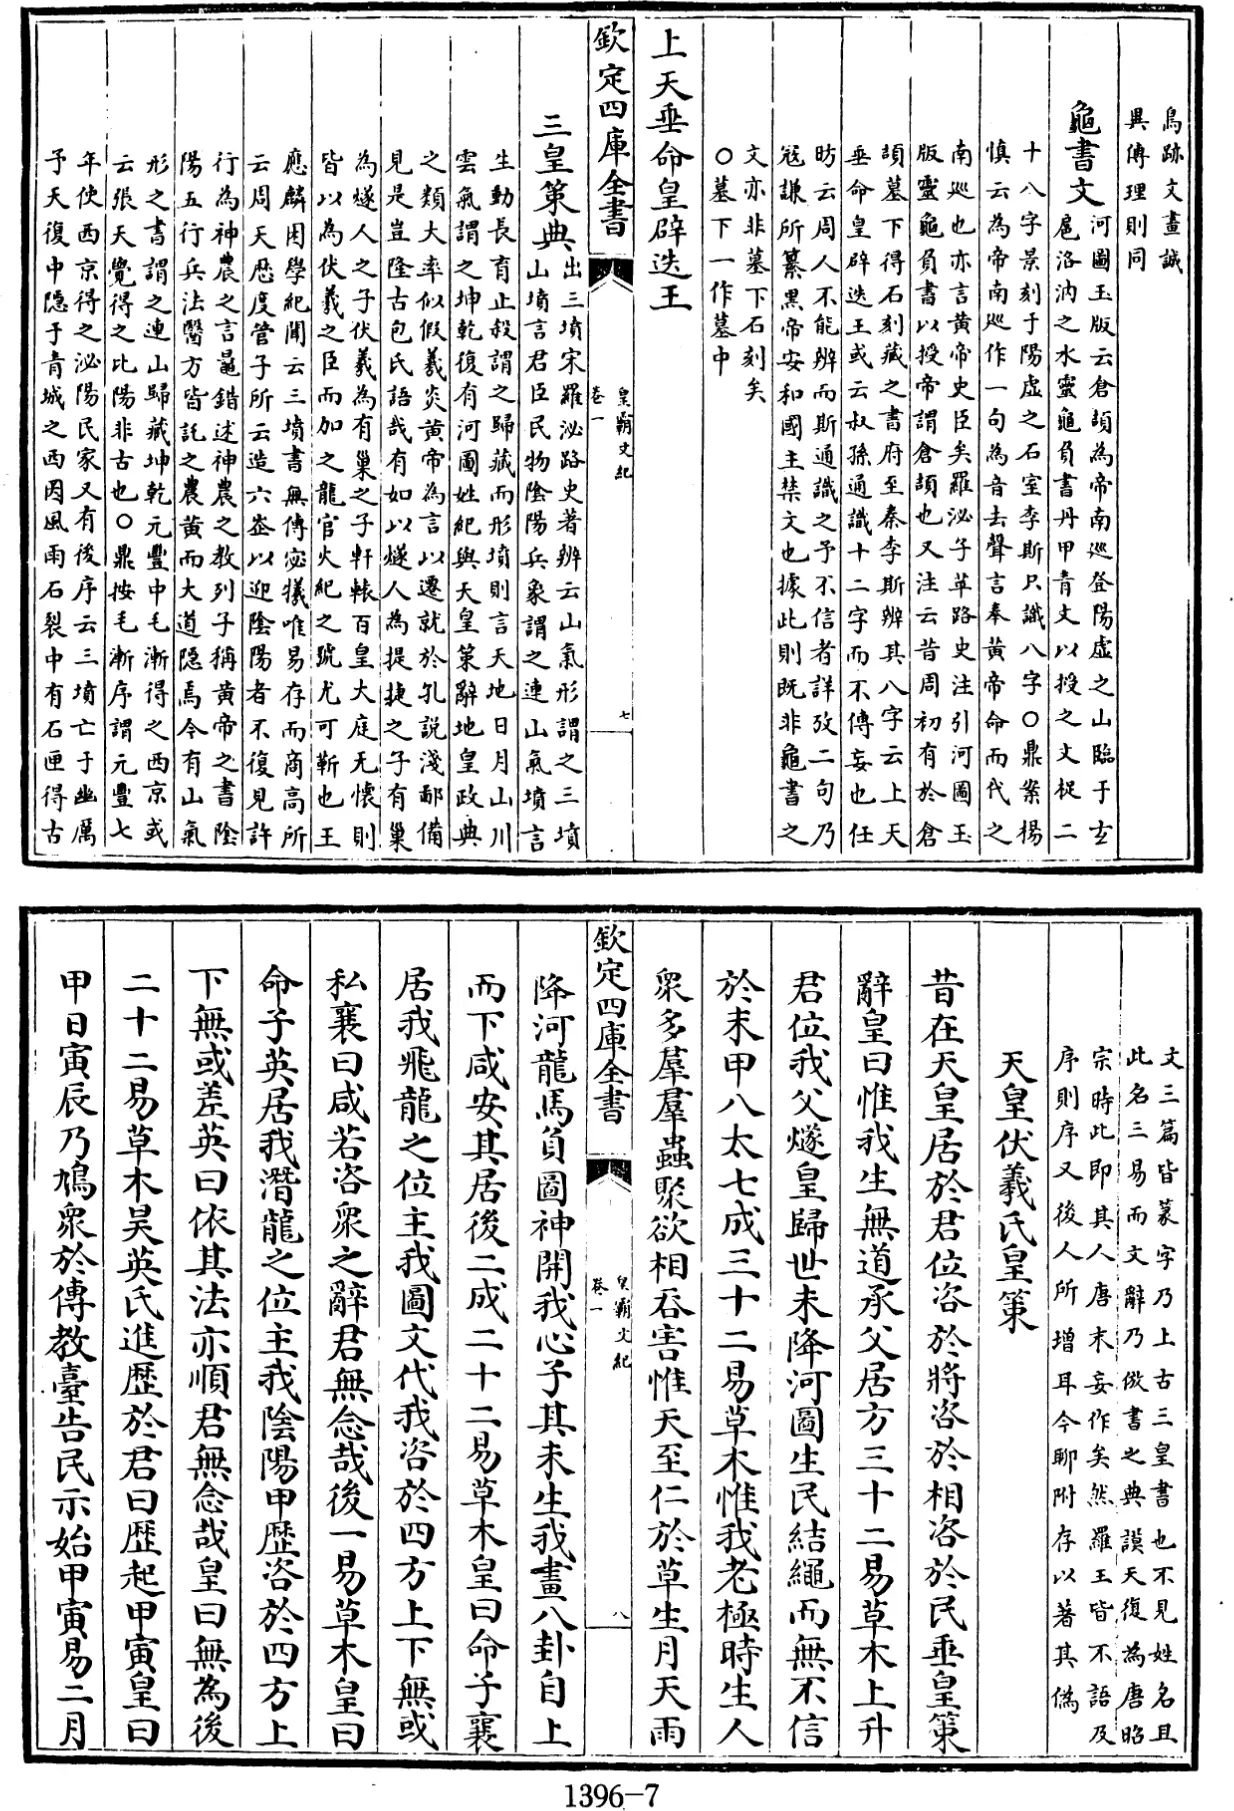 鳥跡文畫誠
異傳理則同
龜書文
河圖玉版云倉頡為帝南巡登陽虛之山臨于玄
扈洛汭之水靈龜負書丹甲青文以授之文二
十八字景刻于陽虛之石室李斯只識八字○鼎案楊
慎云為帝南廵作一句為音去聲言奉黃帝命而代之
南廵也亦言黃帝史臣矣羅泌子苹路史注引河圖玉
版靈龜負書以授帝謂倉頡也又注云昔周初有於倉
頡墓下得石刻藏之書府至秦李斯辨其八字云上天
垂命皇辟迭王或云叔孫通識十二字而不傳妄也任
昉云周人不能辨而斯通識之予不信者詳攷二句乃
冦謙所纂黒帝安和國主禁文也據此則既非龜書之
文亦非墓下石刻矣
○墓下一作墓中
上天垂命皇辟迭王
欽定四庫全書
皇霸文紀
卷一
七
三皇策典
出三墳宋羅泌路史著辨云山氣形謂之三墳
山墳言君臣民物陰陽兵象謂之連山氣墳言
生動長育止殺謂之歸藏而形墳則言天地日月山川
雲氣謂之坤乾復有河圖姓紀與天皇策辭地皇政典
之類大率似假羲炎黃帝為言以遷就於孔說淺鄙備
見是豈隆古包氏語哉有如以燧人為提挻之子有巢
為燧人之子伏羲為有巢之子軒轅百皇大庭无懷則
皆以為伏羲之臣而加之龍官火紀之號尤可靳也王
應麟困學紀聞云三墳書無傳宓犧唯易存而商高所
云周天厯度管子所云造六峜以迎陰陽者不復見許
行為神農之言鼂錯述神農之教列子稱黃帝之書陰
陽五行兵法醫方皆託之農黃而大道隱焉今有山氣
形之書謂之連山歸藏坤乾元豐中毛漸得之西京或
云張天覺得之比陽非古也○鼎按毛漸序謂元豐七
年使西京得之泌陽民家又有後序云三墳亡于幽厲
予天復中隱于青城之西因風雨石裂中有石匣得古
文三篇皆篆字乃上古三皇書也不見姓名且
此名三易而文辭乃倣書之典謨天復為唐昭
宗時此即其人唐末妄作矣然羅王皆不語及
序則序又後人所增耳今聊附存以著其偽
天皇伏羲氏皇策
昔在天皇居於君位咨於將咨於相咨於民垂皇策
辭皇曰惟我生無道承父居方三十二易草木上升
君位我父燧皇歸世未降河圖生民結繩而無不信
於末甲八太七成三十二易草木惟我老極時生人
衆多羣羣蟲聚欲相吞害惟天至仁於草生月天雨
欽定四庫全書
皇霸文紀
卷一
八
降河龍馬負圖神開我心子其未生我畫八卦自上
而下咸安其居後二成二十二易草木皇曰命子襄
居我飛龍之位主我圖文代我咨於四方上下無或
私襄曰咸若咨衆之辭君無念哉後一易草木皇曰
命子英居我潛龍之位主我陰陽甲歷咨於四方上
下無或差英曰依其法亦順君無念哉皇曰無為後
二十二易草木昊英氏進歷於君曰歷起甲寅皇曰
甲日寅辰乃鳩衆於傳教臺告民示始甲寅易二月
1396—7